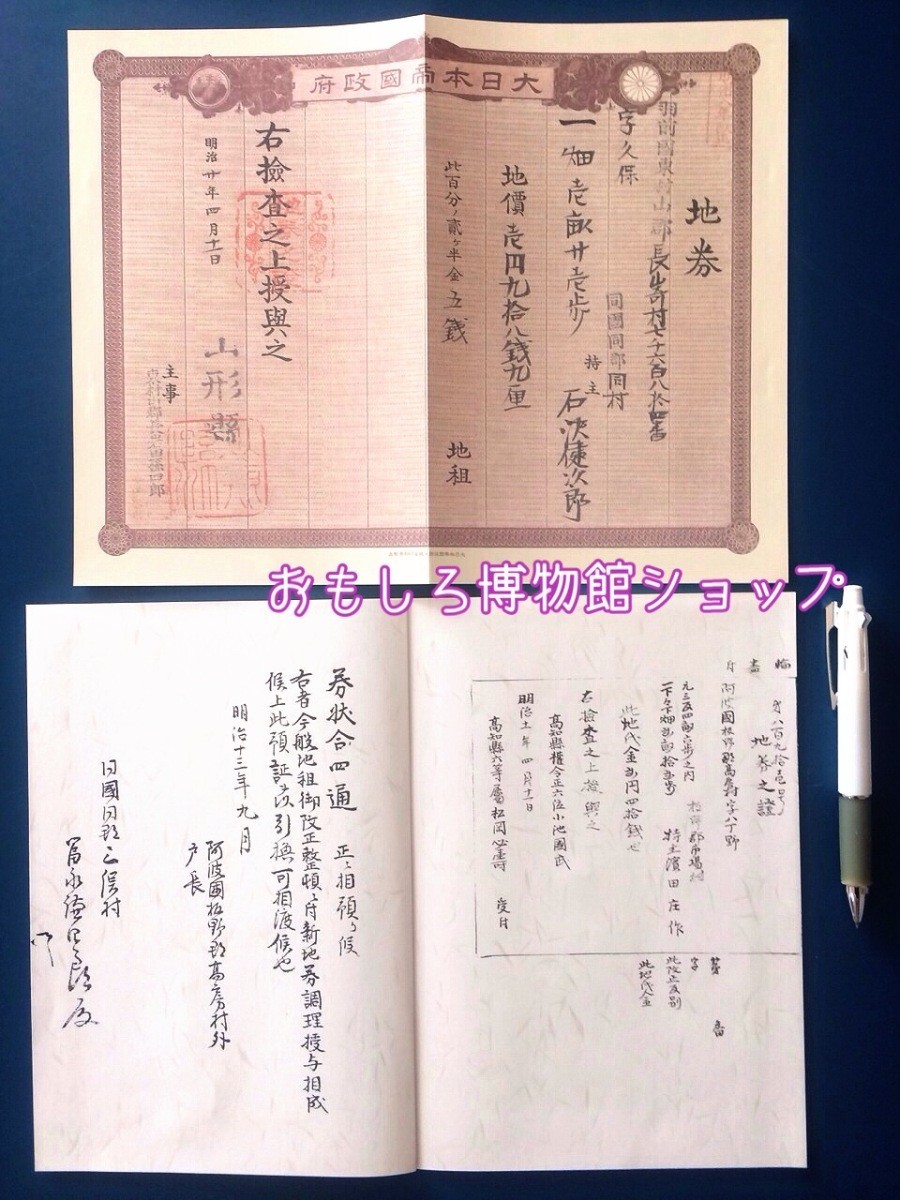 大日本帝國政府
地券
羽前國東村山郡長崎村七千六百八拾四番
字久保
同國同郡同村
一畑壱畝廿壱歩
持主
石沢健次郎
地價壱円九拾八銭九厘
此百分ノ貳ヶ半金五銭
地租
右検査之上授與之
明治廿年四月十一日
山形縣
主事
おもしろ博物館ショップ
第八百九拾壱号
地券之證
阿波國板野郡高房字八丁野
持主濱田庄作
此地代金弐円四拾銭也
右検査之上授與之
明治十一年四月十一日
高知縣権令正六位小池國武
高知縣六等属松岡
受付
第
番
字
此改正反別
此地代金
券状合四通
正ニ相願候
右者今般地租御改正整頓ニ付新地券調理授与相成
候上此預証ヲ以引換可相渡候也
明治十三年九月
阿波國板野郡高房村外
戸長
同國同郡